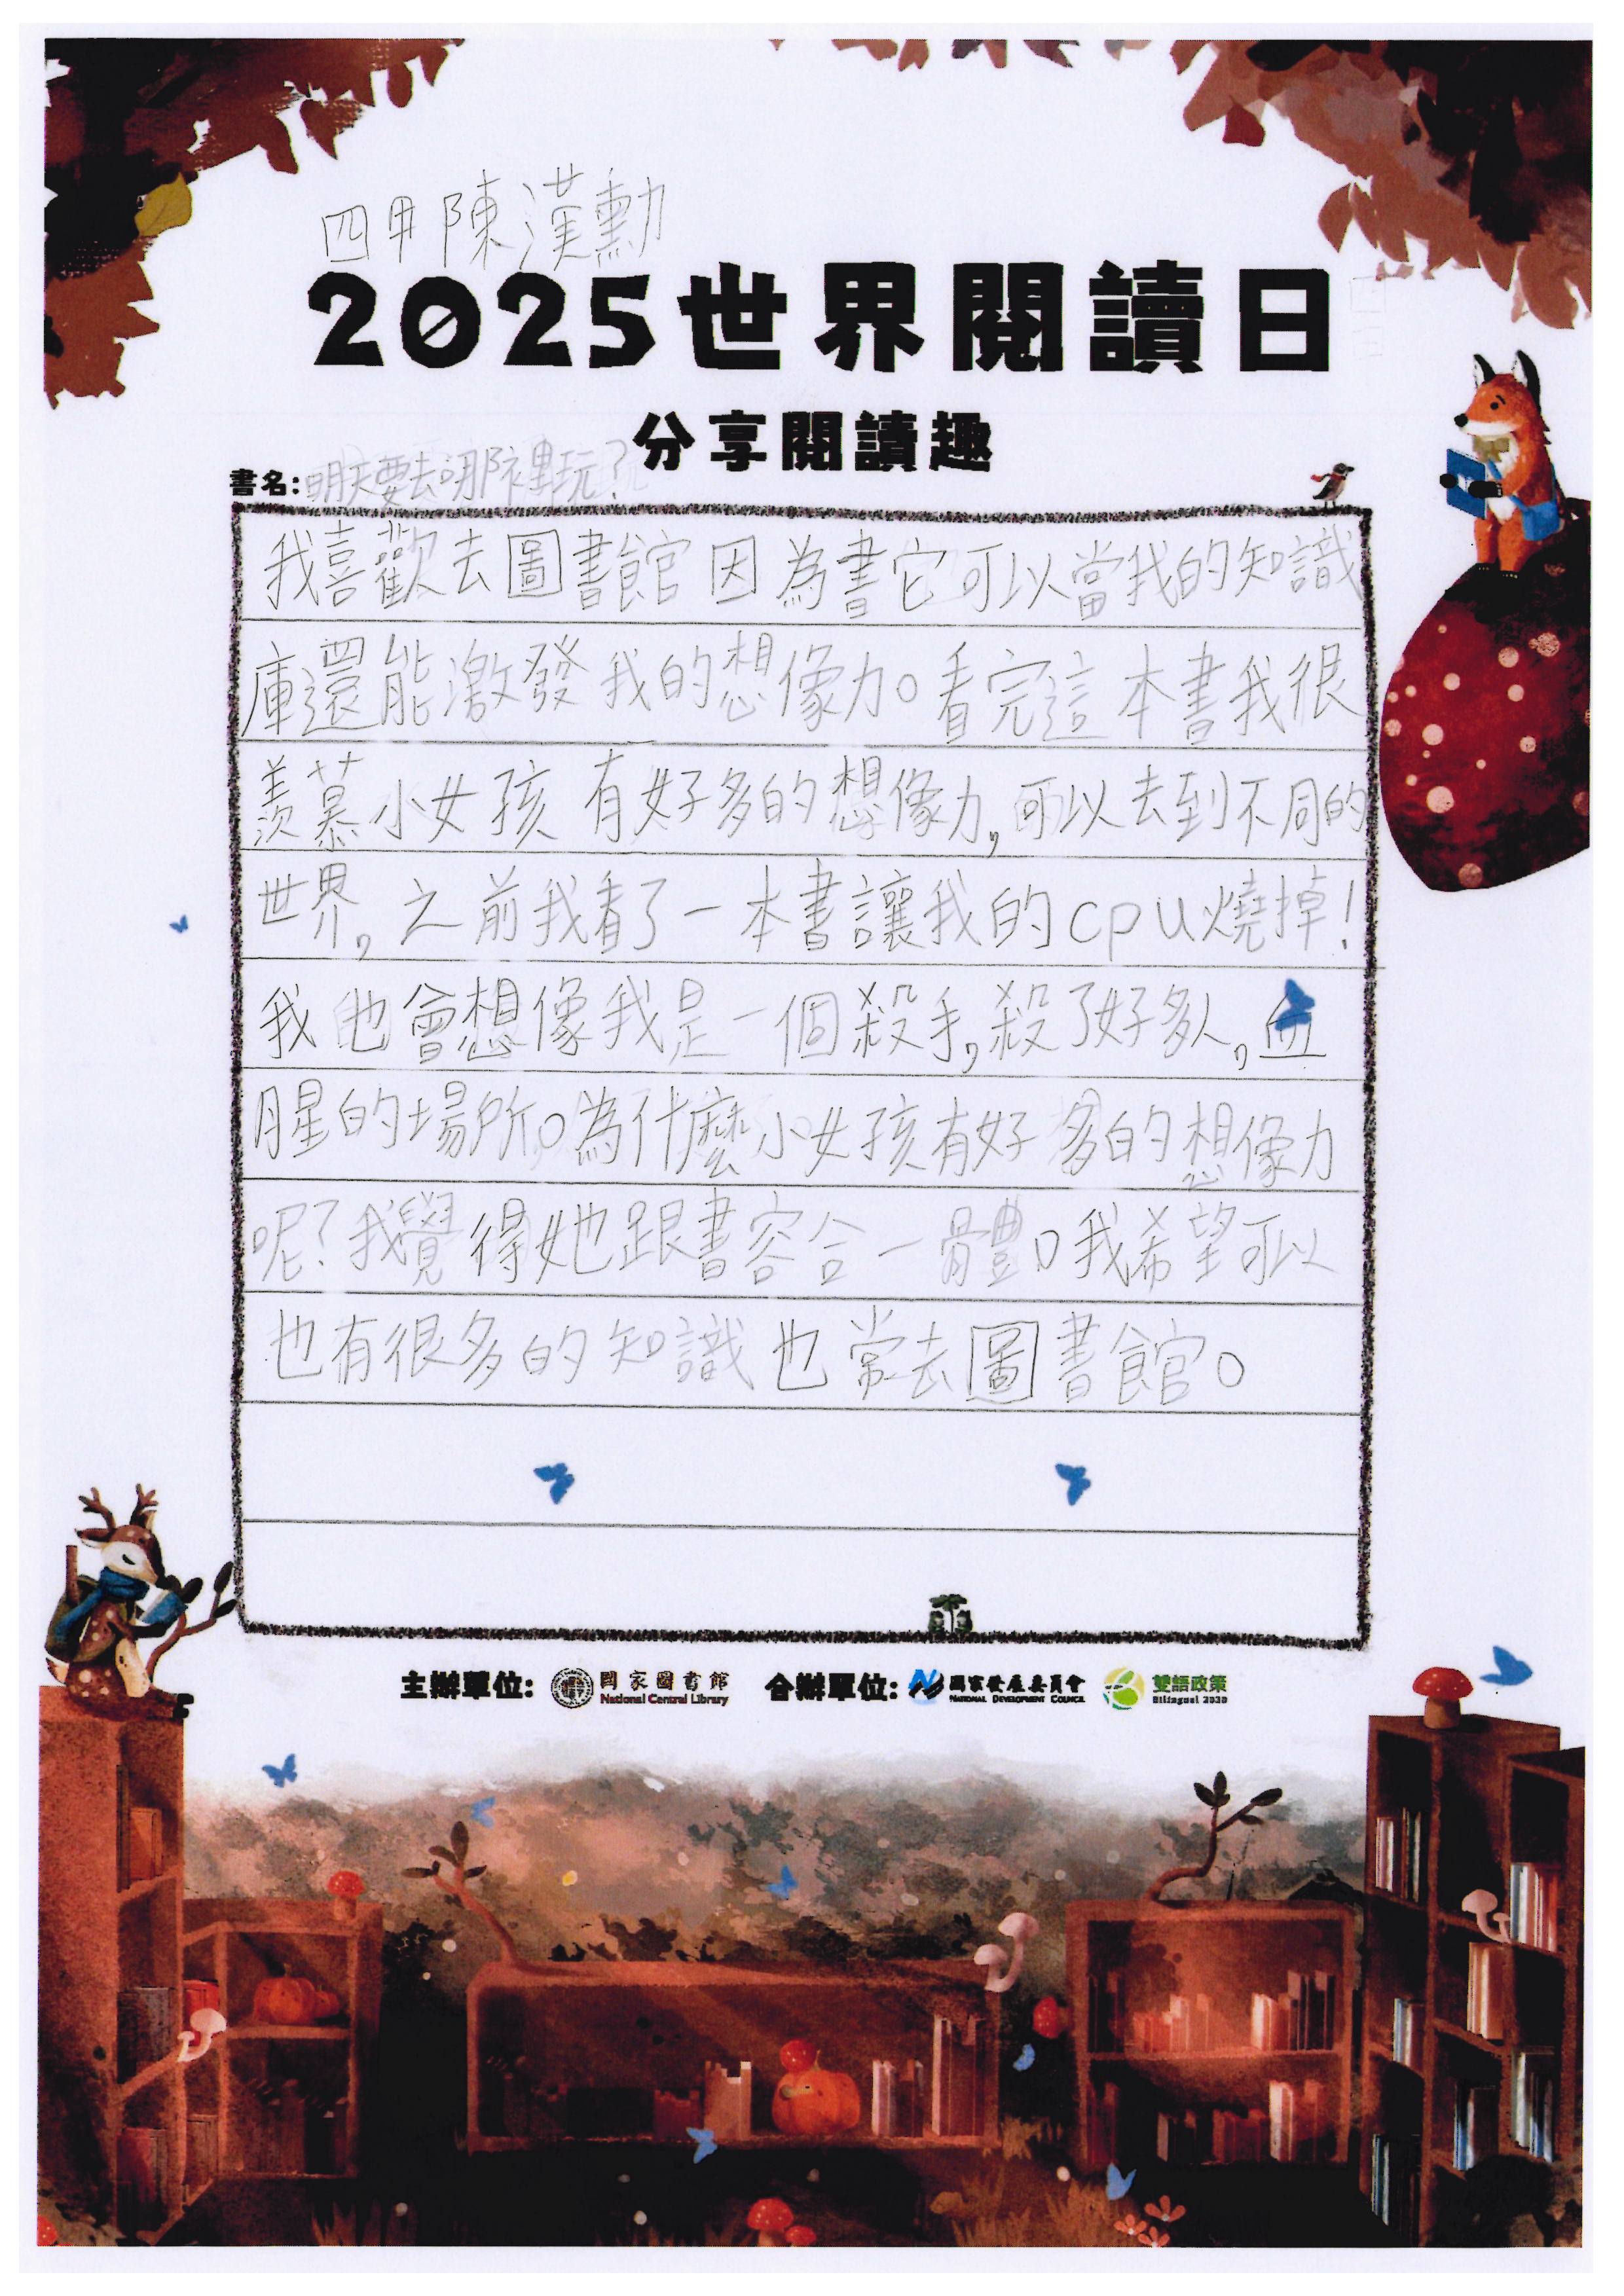 四甲陳漢勳
2025世界閱讀日
分享閱讀趣
書名:明天要去哪裡玩?
我喜歡去圖書館因為書它可以當我的知識
庫還能激發我的想像力。看完這本書我很
羨慕小女孩有好多的想像力,可以去到不同的
世界,之前我看了一本書讓我的cpu燒掉!
我也會想像我是一個殺手,殺了好多人,血
腥的場所。為什麼小女孩有好多的想像力
呢?我覺得她跟書容合一體。我希望可以
也有很多的知識也常去圖書館。
主辦單位: 國家圖書館 National Central Library 合辦單位: 國家發展委員會 NATIONAL DEVELOPMENT COUNCIL 雙語政策 Bilingual 2030